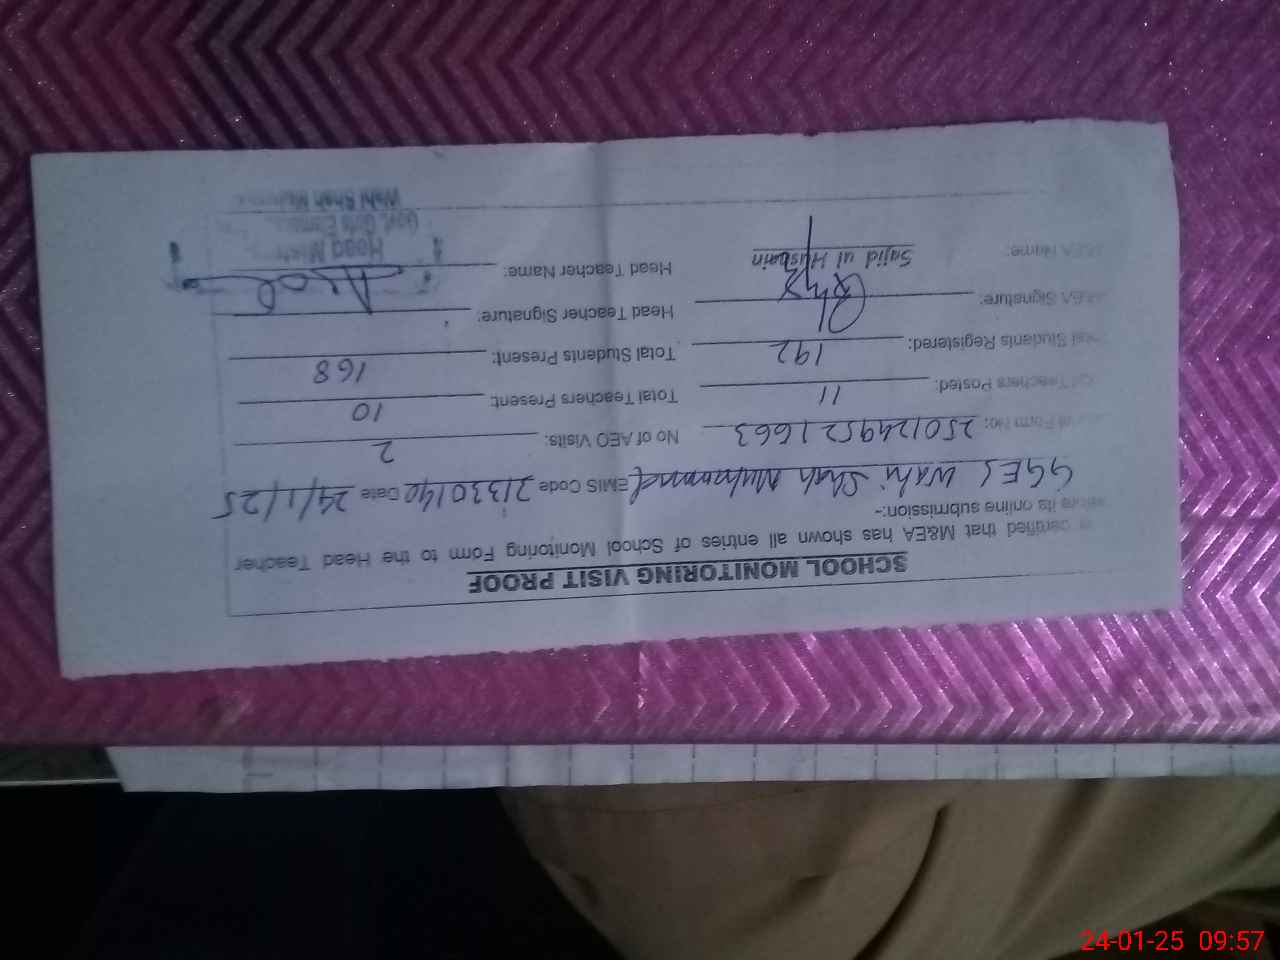 SCHOOL MONITORING VISIT PROOF
certified that M&EA has shown all entries of School Monitoring Form to the Head Teacher
its online submission:-
GGES Wahi Shah Muhammad EMIS Code 31330140 Date 24/1/25
Form No: 250124951663 No of AEO Visits: 2
Teachers Posted: 11 Total Teachers Present: 10
Students Registered: 192 Total Students Present: 168
M&EA Signature: Head Teacher Signature:
M&EA Name: Sajid ul Husnain Head Teacher Name:
Head
Govt. Girls
Wahi Shah
24-01-25 09:57